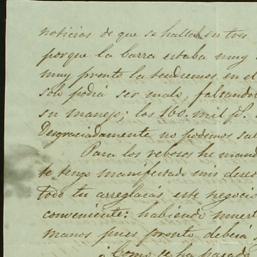 noticias de que se hallan en
porque la barra estaba muy
muy pronto la tendremos en el
solo podrá ser malo,
su manejo; los 160. mil
Desgraciadamente no podemos
Para los reboros he
te tengo manifestado mis
todo tu arreglarás este negocio
conveniente: habiendo
manos pues pronto deberá
¿Como se ha pasado